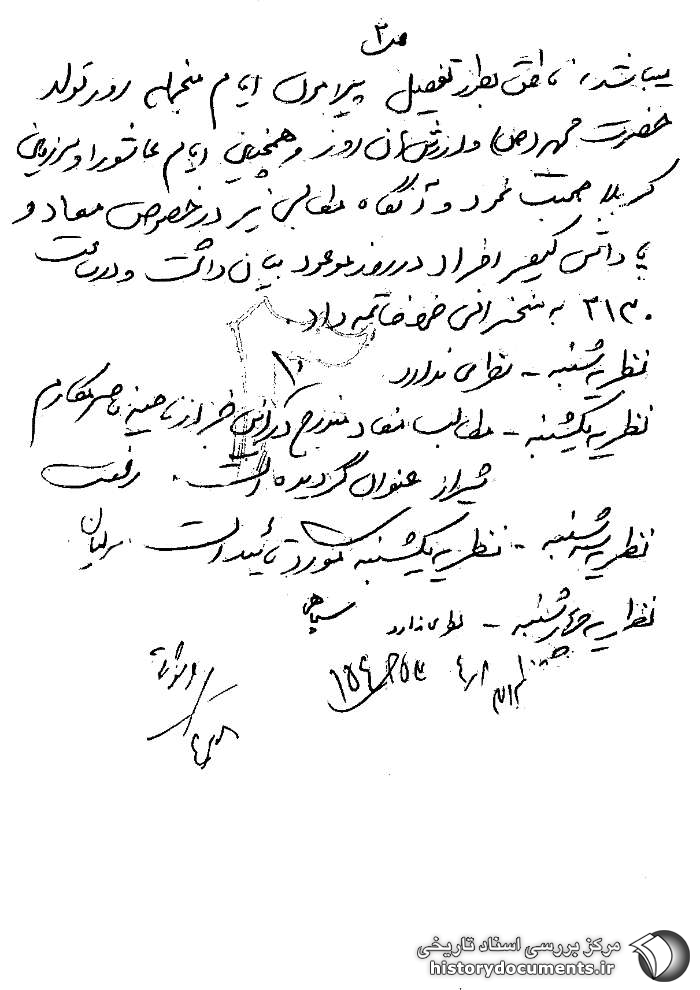 ص ۲
میباشد، ناطق بطور تفصیل پیرامون ایام منجمله روز تولد
حضرت محمد (ص) و ارزش آن روز و همچنین ایام عاشورا و سرزمین
کربلا صحبت نمود و آنگاه مطالبی نیز در خصوص معاد و
پاداش کیفر افراد در روز موعود بیان داشت و در ساعت
۲۱۳۰ به سخنرانی خود خاتمه داد.
نظریه شنبه - نظری ندارد
نظریه یکشنبه - مطالب مفاد مندرج در این خبر از ناحیه ناصر مکارم
شیراز عنوان گردیده است. رفعت
نظریه سه شنبه - نظریه یکشنبه مورد تأئید است.
نظریه چهارشنبه - نظری ندارد سپاهی
مرکز بررسی اسناد تاریخی
historydocuments.ir